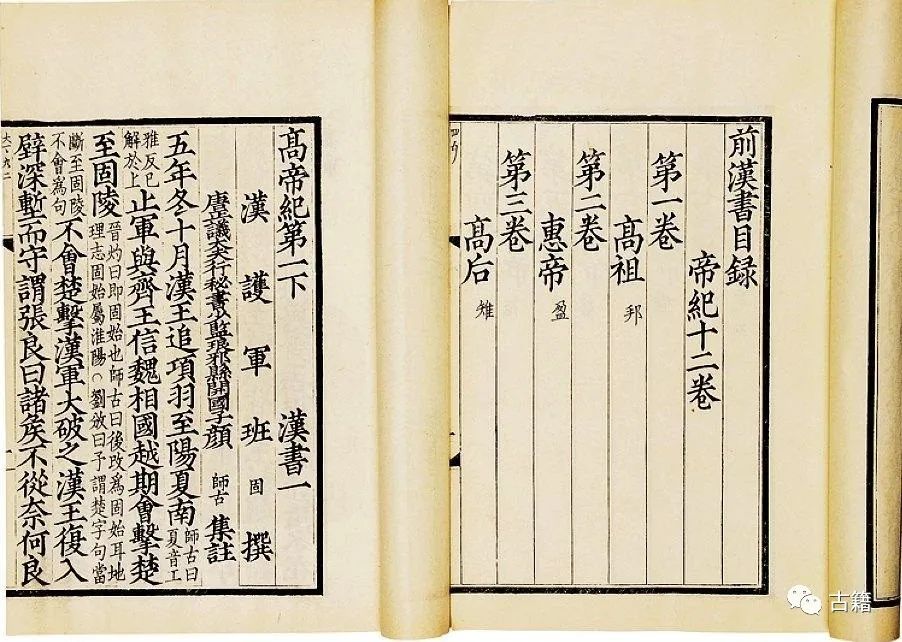 前漢書目録
帝紀十二卷
第一卷
髙祖 邦
第二卷
惠帝 盈
第三卷
髙后 雉
髙帝紀第一下 漢書一
漢護軍班固撰
唐正議大夫行秘書少監琅邪縣開國子顏師古集註
五年冬十月漢王追項羽至陽夏南師古曰夏音工
雅反已解於上止軍與齊王信魏相國越期會擊楚
至固陵晉灼曰即固始也師古曰後改爲固始耳地理志固始屬淮陽○劉攽曰予謂楚字句當
斷至固陵不會爲句不會楚擊漢軍大破之漢王復入
壁深塹而守謂張良曰諸矦不從奈何良
古籍